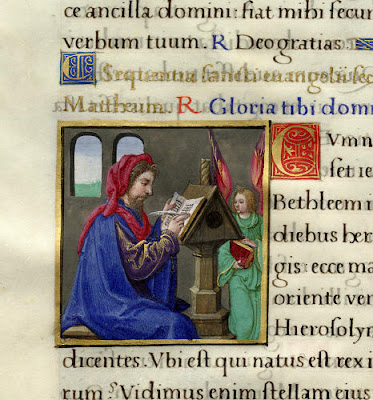 ce ancilla domini: fiat mihi secun
verbum tuum. R Deo gratias.
Sequentia sancti euangelii sec
Mattheum. R Gloria tibi domi
Cvmn
set ie
Bethleem i
diebus her
gis: ecce ma
oriente ven
Hierosolym
dicentes. Vbi est qui natus est rex i
rum? Vidimus enim stellam eius